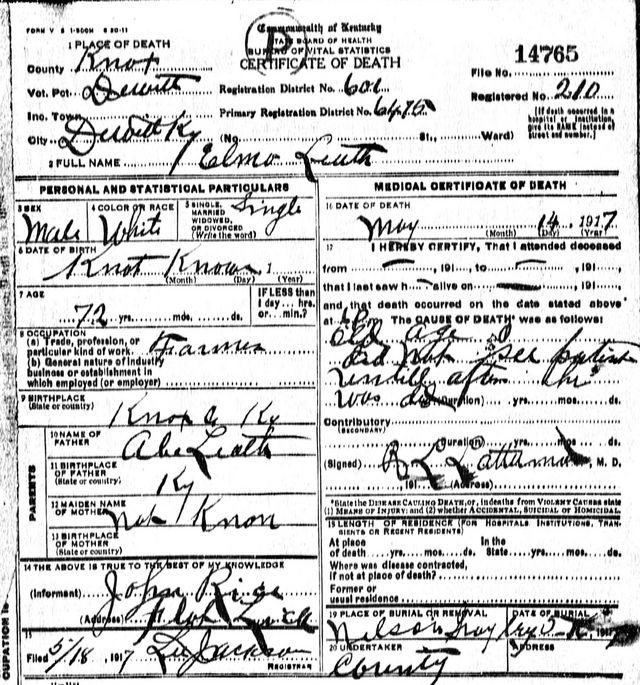 FORM V S 1-500M 6 30-11
Commonwealth of Kentucky
STATE BOARD OF HEALTH
BUREAU OF VITAL STATISTICS
CERTIFICATE OF DEATH
1 PLACE OF DEATH
County Knox
Vot. Pct. Dewitt
Inc. Town
City Dewitt Ky
Registration District No. 601
Primary Registration District No. 6475
(No. St., Ward)
14765
File No.
Registered No. 210
[If death occurred in a hospital or institution, give its NAME instead of street and number.]
2 FULL NAME Elmo Leath
PERSONAL AND STATISTICAL PARTICULARS
3 SEX Male
4 COLOR OR RACE White
5 SINGLE, MARRIED WIDOWED, OR DIVORCED (Write the word) Single
6 DATE OF BIRTH
Knot Known 1
(Month) (Day) (Year)
7 AGE
72 yrs. mos. ds.
IF LESS than 1 day hrs. or min.?
8 OCCUPATION
(a) Trade, profession, or particular kind of work. Farmer
(b) General nature of industry business or establishment in which employed (or employer)
9 BIRTHPLACE
(State or country)
Knox Co Ky
PARENTS
10 NAME OF FATHER
Abe Leath
11 BIRTHPLACE OF FATHER
(State or country)
Ky
12 MAIDEN NAME OF MOTHER
Not Knon
13 BIRTHPLACE OF MOTHER
(State or country)
14 THE ABOVE IS TRUE TO THE BEST OF MY KNOWLEDGE
(Informant) John Rice
(Address) Flat Lick
15
Filed 5/18, 1917 Lee Jackson
REGISTRAR
MEDICAL CERTIFICATE OF DEATH
16 DATE OF DEATH
May 14, 1917
(Month) (Day) (Year)
17 I HEREBY CERTIFY, That I attended deceased
from , 191 , to , 191 ,
that I last saw h alive on , 191 ,
and that death occurred on the date stated above
at m. The CAUSE OF DEATH* was as follows:
Old age
Did Not See patient
untill after he
was
(Duration) yrs. mos. ds.
Contributory
(SECONDARY)
(Duration) yrs. mos. ds.
(Signed) M. D.
191 (Address)
*State the DISEASE CAUSING DEATH, or, in deaths from VIOLENT CAUSES state (1) MEANS OF INJURY; and (2) whether ACCIDENTAL, SUICIDAL or HOMICIDAL.
18 LENGTH OF RESIDENCE (FOR HOSPITALS, INSTITUTIONS, TRANSIENTS OR RECENT RESIDENTS)
At place of death yrs. mos. ds. In the State yrs. mos. ds.
Where was disease contracted, if not at place of death?
Former or usual residence
19 PLACE OF BURIAL OR REMOVAL
DATE OF BURIAL
Nelson
20 UNDERTAKER
County
ADDRESS
CUPATION is